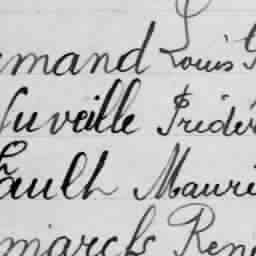 mand Louis
uveille Fridér
Fault Mauri
marcks Ren